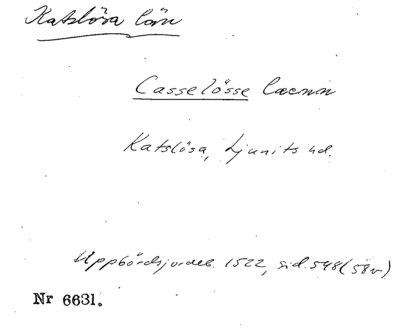 Katslösa län
Casselösse læenn
Katslösa, Ljunits hd.
Uppbördsjordeb. 1522, sid. 548 (58v)
Nr 6631.